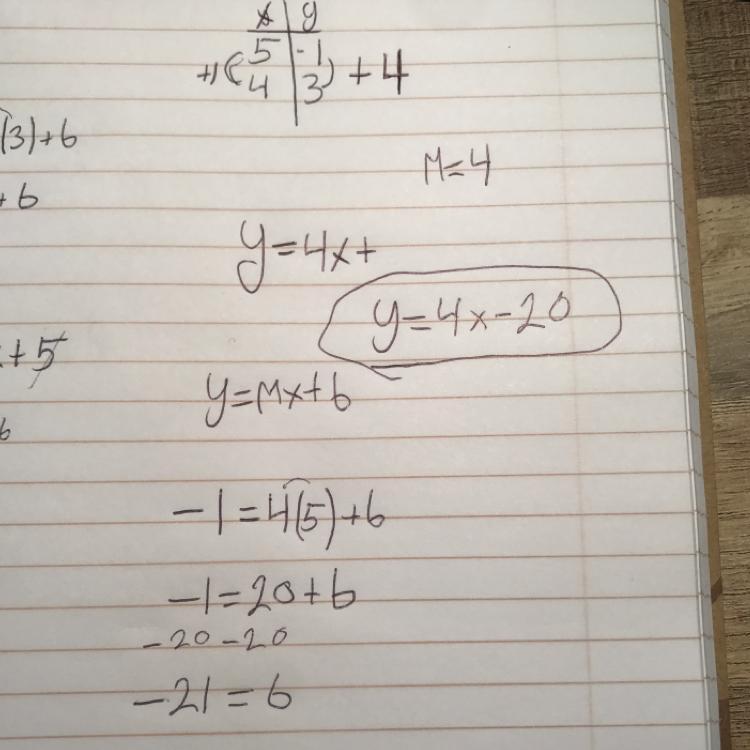 x | y
5 | -1
+1 ( 4 | 3 ) + 4
(3)+b
+b
M=4
y=4x+
y=4x-20
+5
y=Mx+b
b
-1=4(5)+b
-1=20+b
-20 -20
-21=b